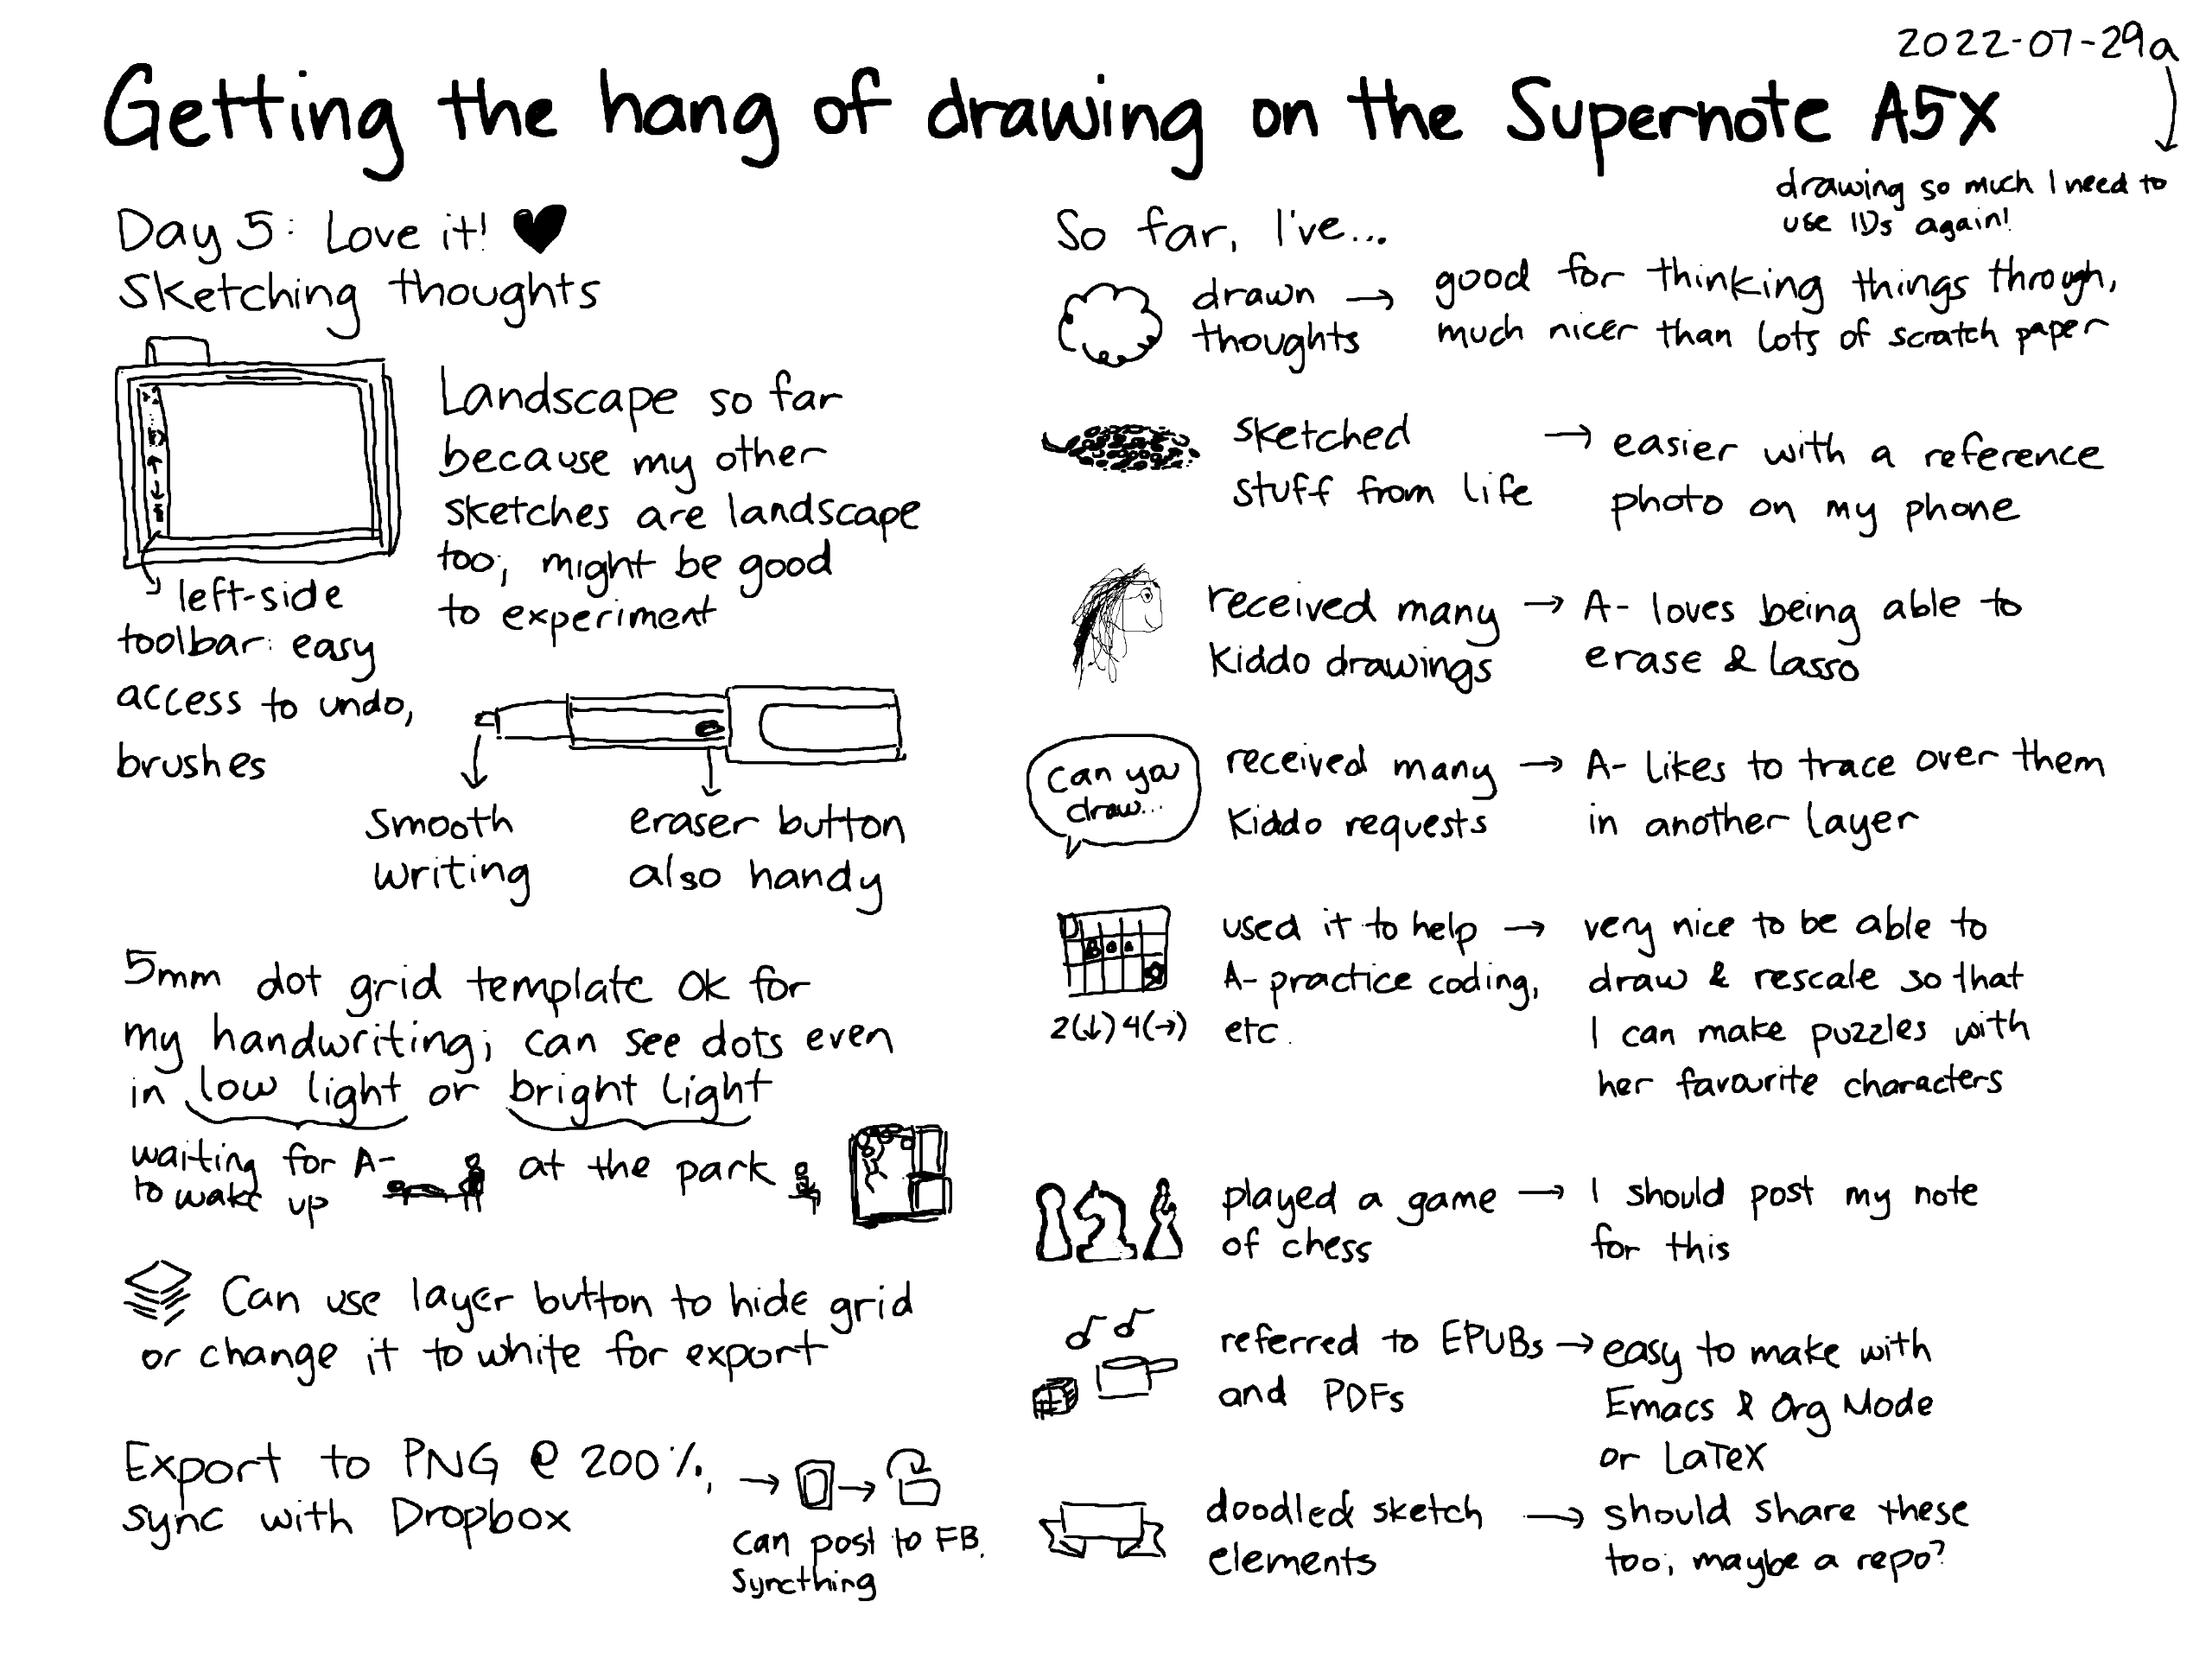 2022-07-29a
Getting the hang of drawing on the Supernote A5X
drawing so much I need to
use IDs again!
Day 5: Love it!
Sketching thoughts
Landscape so far
because my other
sketches are landscape
too; might be good
to experiment
left-side
toolbar: easy
access to undo,
brushes
smooth
writing
eraser button
also handy
5mm dot grid template OK for
my handwriting; can see dots even
in low light or bright light
waiting for A-
to wake up
at the park
Can use layer button to hide grid
or change it to white for export
Export to PNG @ 200%,
sync with Dropbox
can post to FB,
Syncthing
So far, I've...
drawn → good for thinking things through,
thoughts much nicer than lots of scratch paper
sketched → easier with a reference
stuff from life photo on my phone
received many → A- loves being able to
kiddo drawings erase & lasso
can you
draw...
received many → A- likes to trace over them
kiddo requests in another layer
used it to help → very nice to be able to
A- practice coding, draw & rescale so that
2(↓) 4(→) etc. I can make puzzles with
her favourite characters
played a game → I should post my note
of chess for this
referred to EPUBs → easy to make with
and PDFs Emacs & Org Mode
or LaTeX
doodled sketch → should share these
elements too; maybe a repo?